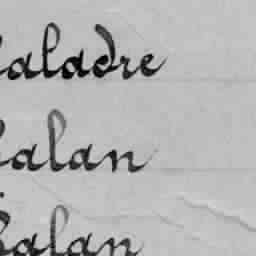 aladre
alan
alan